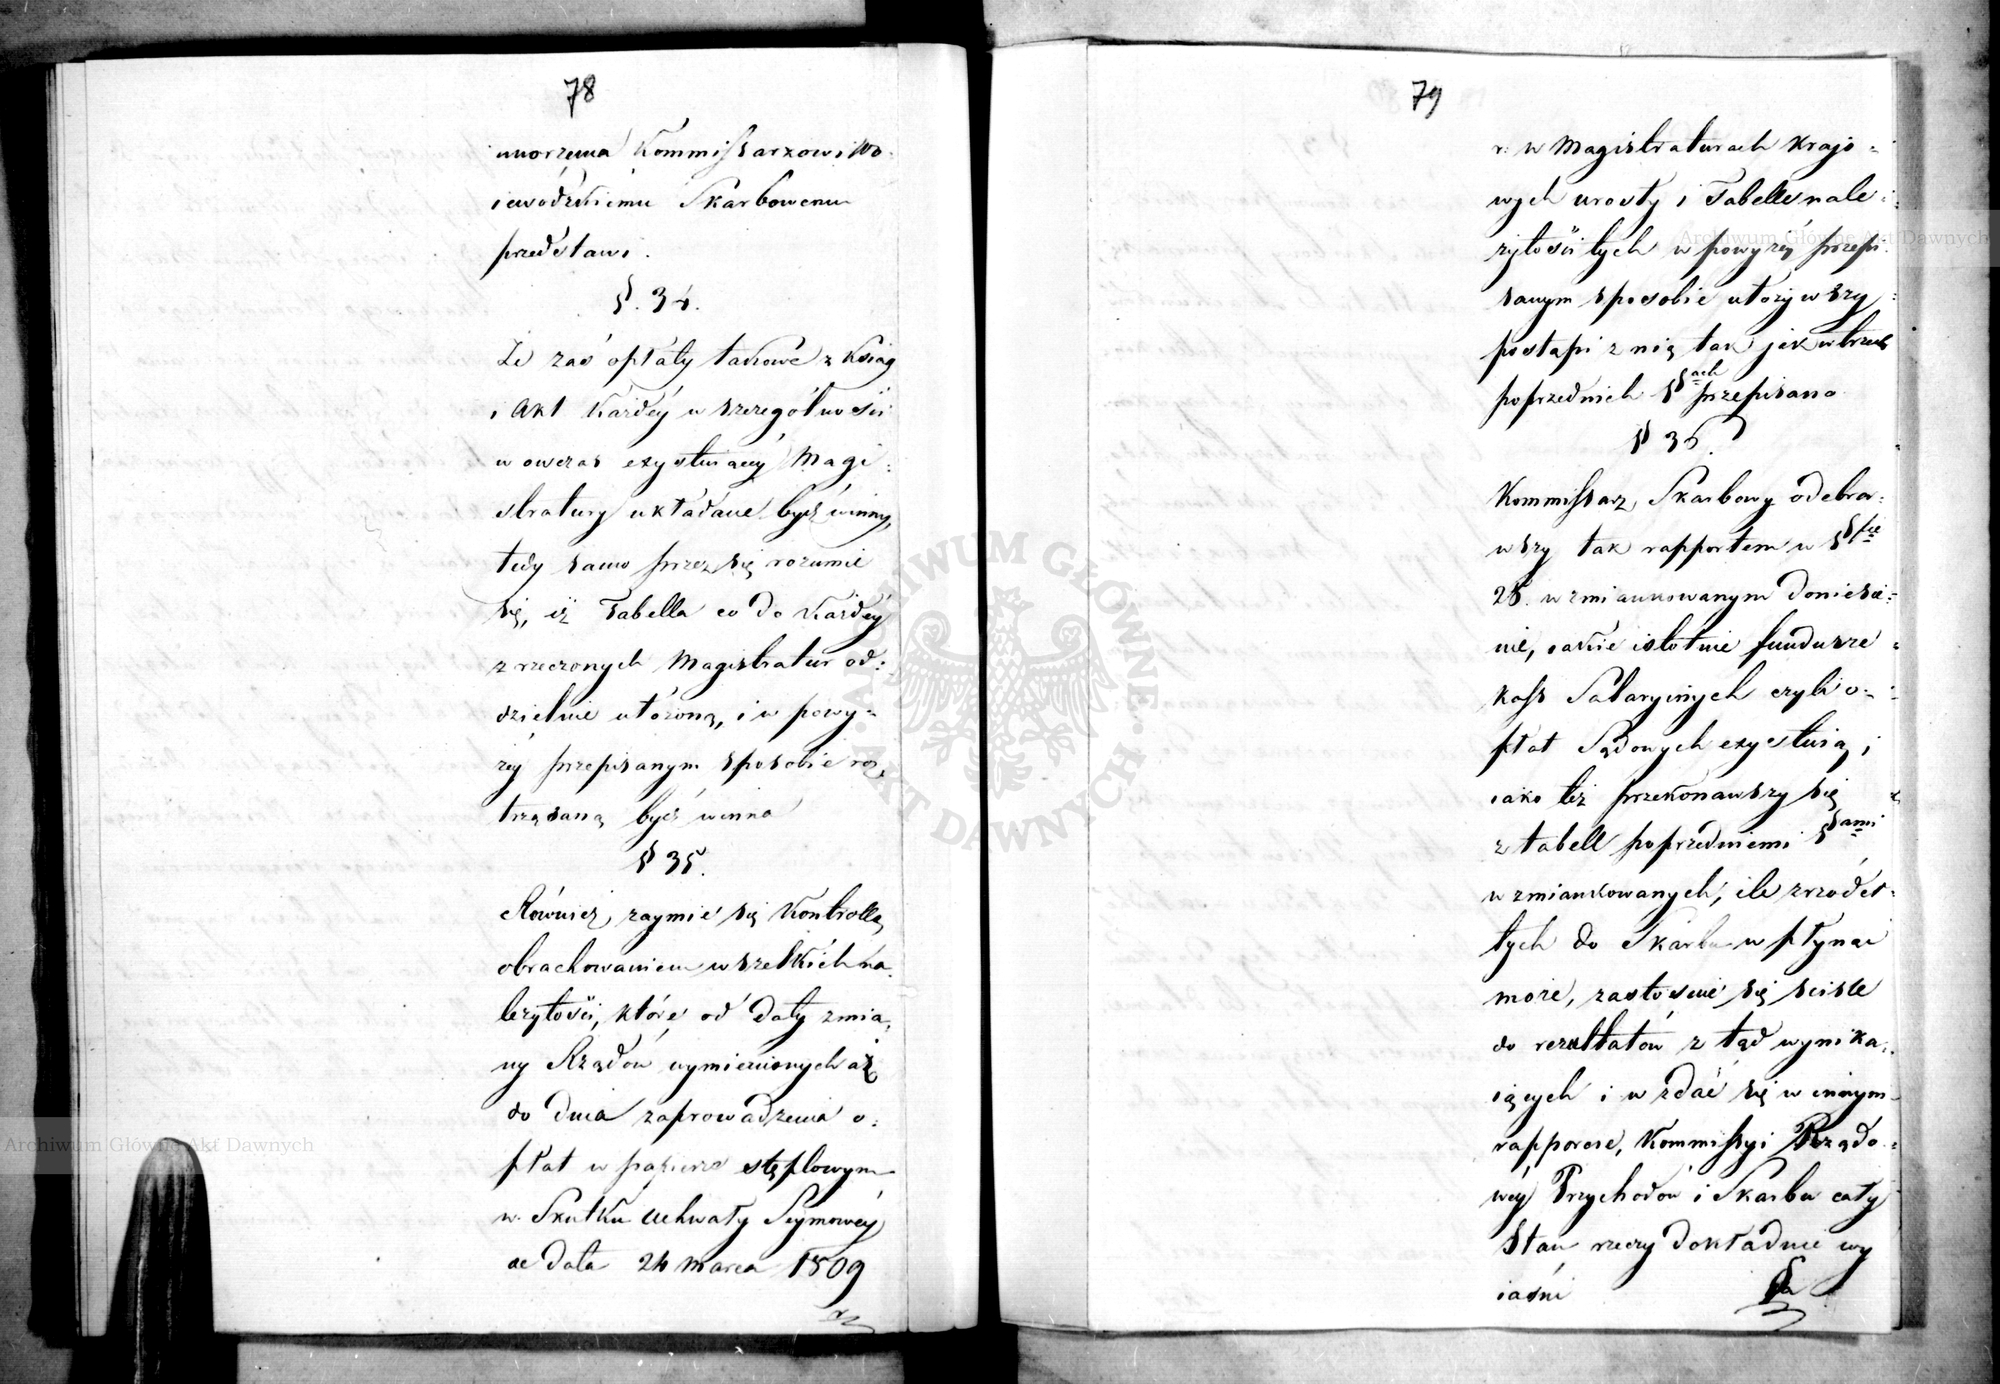 78
umorzenia Kommissarzowi Wo-
iewódzkiemu Skarbowemu
przedstawi.
§. 34.
Że zaś opłaty takowe z Ksiąg
i Akt każdey w szczególności
wowczas exystuiącey Magi-
stratury układane być winny,
tedy samo przez się rozumie
się, iż Tabella co do każdey
z rzeczonych Magistratur od-
dzielnie ułożoną, i w powy-
żey przepisanym sposobie roz-
trząsaną być winna
§ 35.
Również zaymie się Kontrolla,
obrachowaniem wszelkich na-
leżytości, które od daty zmia-
ny Rządów wymienionych aż
do dnia zaprowadzenia o-
płat w papierze stęplowym
w Skutku Uchwały Seymowey
de dato 24 marca 1809
79
r: w Magistraturach krajo-
wych urosły i Tabelle nale-
żytości tych w powyżey przepi-
sanym sposobie ułożywszy
postąpi z nią tak jak w trzech
poprzednich §§ach przepisano
§ 36.
Kommissarz Skarbowy odebra-
wszy tak rapportem w §fie
28. wzmiankowanym doniesie-
nie, iakie istotnie fundusze
kass Salaryinych czyli o-
płat Sądowych exystuią,
iako też przekonawszy się
z tabell poprzedniemi §§ami
wzmiankowanych, ile zrzódeł
tych do Skarbu wpłynąć
może, zastosuie się ściśle
do rezultatów z tąd wynika-
iących i w zdać się winnym
rapporcie, Kommissyi Rządo-
wey Przychodów i Skarbu cały
Stan rzeczy dokładnie wy
iaśni
Archiwum Główne Akt Dawnych
ARCHIWUM GŁÓWNE AKT DAWNYCH
Archiwum Główne Akt Dawnych